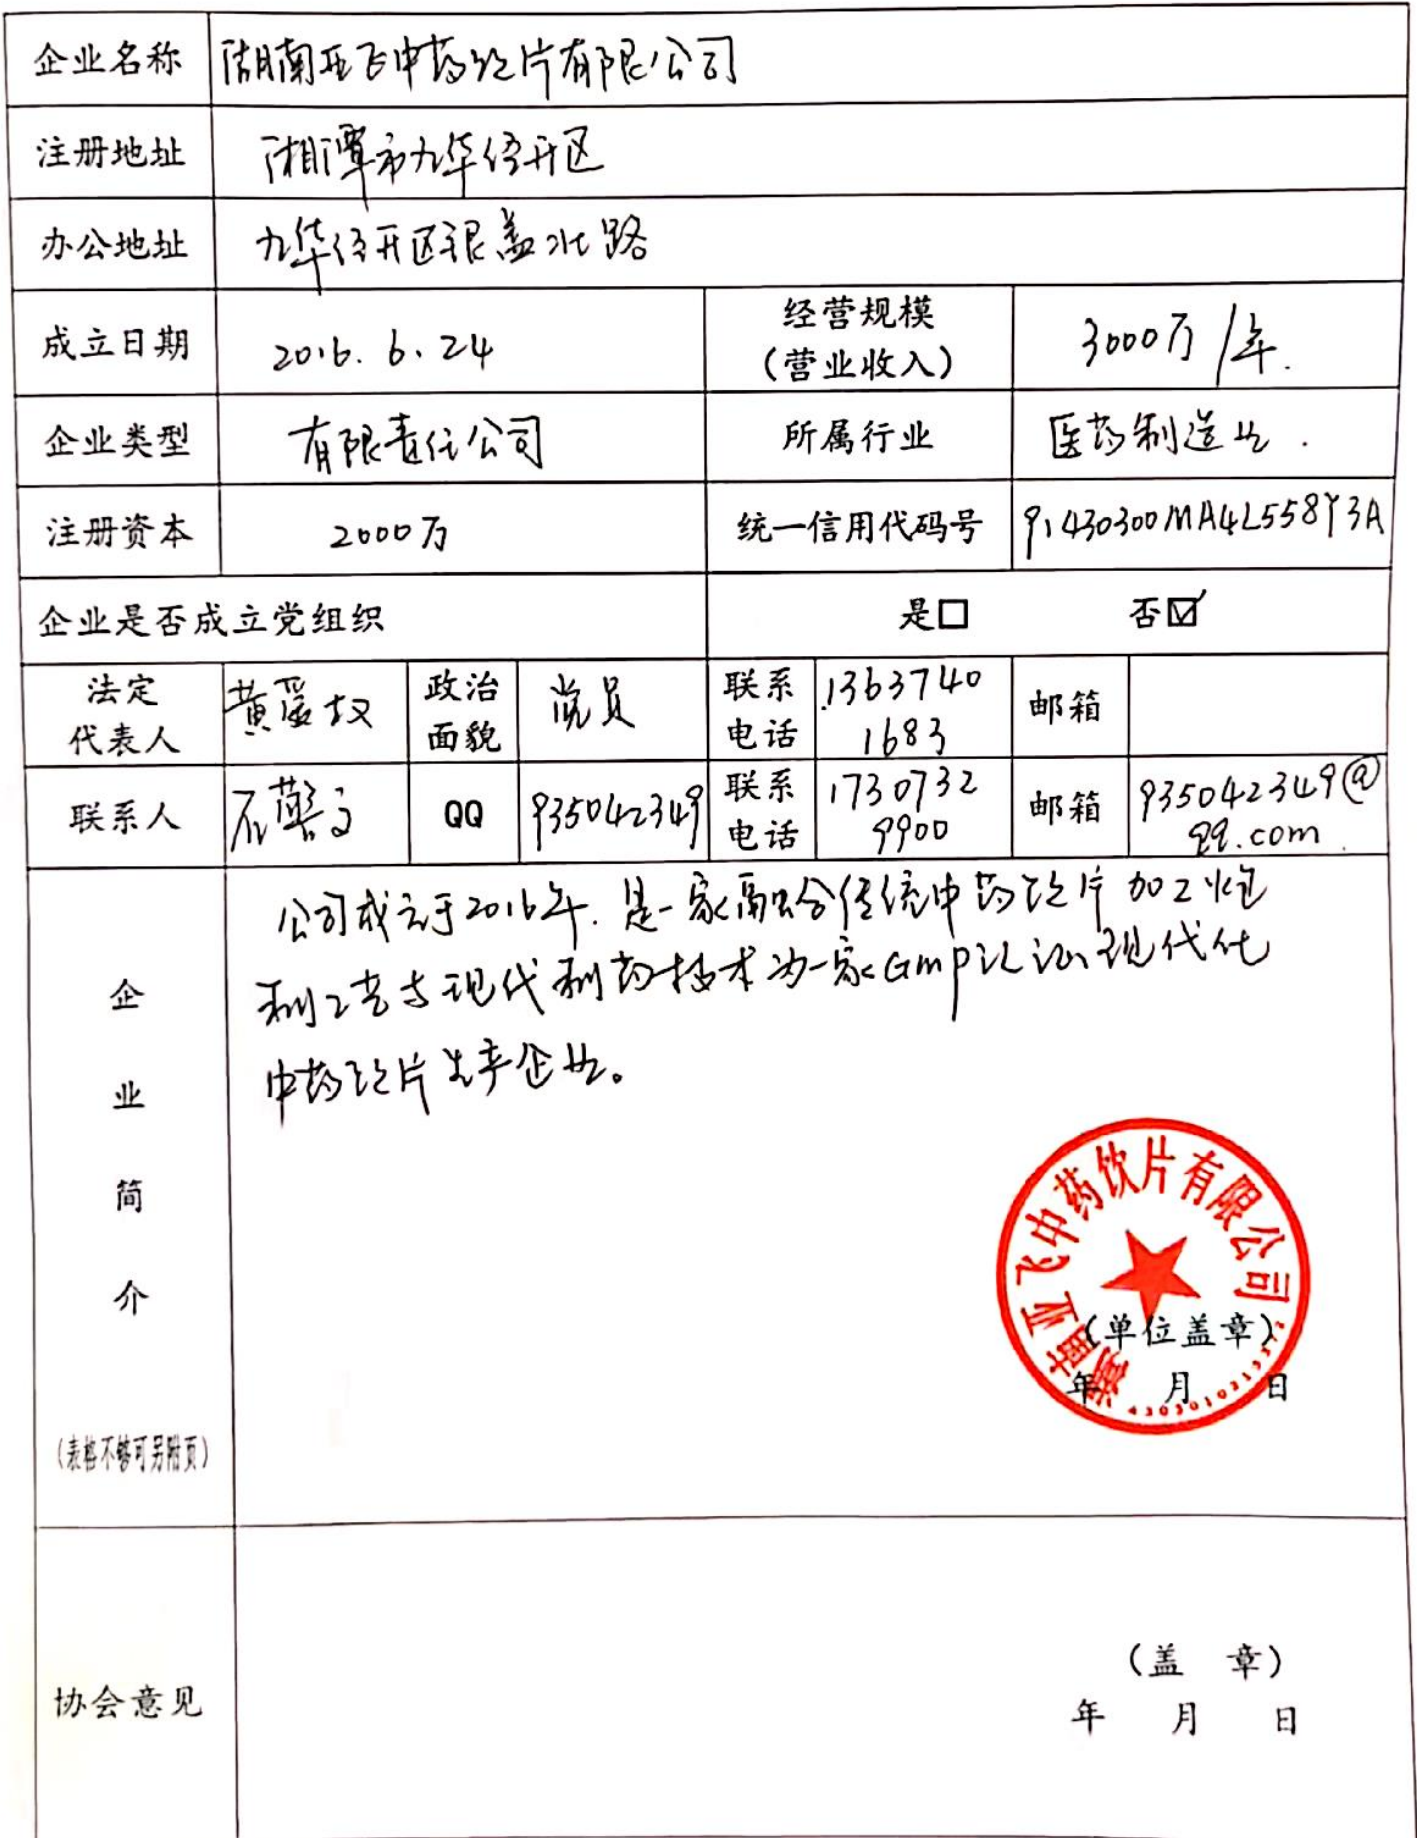 企业名称 湖南亚飞中药饮片有限公司
注册地址 湘潭市九华经开区
办公地址 九华经开区银盖北路
成立日期 2016.6.24 经营规模（营业收入） 3000万/年.
企业类型 有限责任公司 所属行业 医药制造业.
注册资本 2000万 统一信用代码号 91430300MA4L558Y3A
企业是否成立党组织 是□ 否☑
法定代表人 黄 政治面貌 党员 联系电话 13637401683 邮箱
联系人 石 QQ 935042349 联系电话 17307329900 邮箱 935042349@qq.com
企业简介
公司成立于2016年.是一家融合传统中药饮片加工炮
制工艺与现代制药技术为一家Gmp认证现代化
中药饮片生产企业。
湖南亚飞中药饮片有限公司
（单位盖章）
年 月 日
（表格不够可另附页）
协会意见
（盖 章）
年 月 日